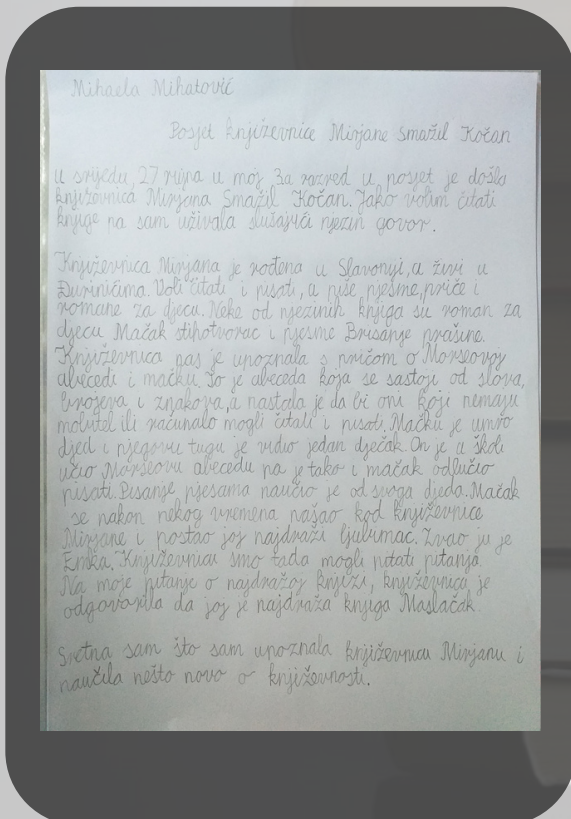 Mihaela Mihatović
Posjet književnice Mirjane Smažil Kočan
U srijedu, 27 rujna u moj 3a razred u posjet je došla
književnica Mirjana Smažil Kočan. Jako volim čitati
knjige pa sam uživala slušajući njezin govor.
Književnica Mirjana je rođena u Slavoniji, a živi u
Đurinićima. Voli čitati i pisati, a piše pjesme, priče i
romane za djecu. Neke od njezinih knjiga su roman za
djecu Mačak stihotvorac i pjesme Brisanje prašine.
Književnica nas je upoznala s pričom o Morseovoj
abecedi i mačku. To je abeceda koja se sastoji od slova,
brojeva i znakova, a nastala je da bi oni koji nemaju
mobitel ili računalo mogli čitati i pisati. Mačku je umro
djed i njegovu tugu je vidio jedan dječak. On je u školi
učio Morseovu abecedu pa je tako i mačak odlučio
pisati. Pisanje pjesama naučio je od svoga djeda. Mačak
se nakon nekog vremena našao kod književnice
Mirjane i postao joj najdraži ljubimac. Zvao ju je
Emka. Književnicu smo tada mogli pitati pitanja.
Na moje pitanje o najdražoj knjizi, književnica je
odgovorila da joj je najdraža knjiga Maslačak
Sretna sam što sam upoznala književnicu Mirjanu i
naučila nešto novo o književnosti.